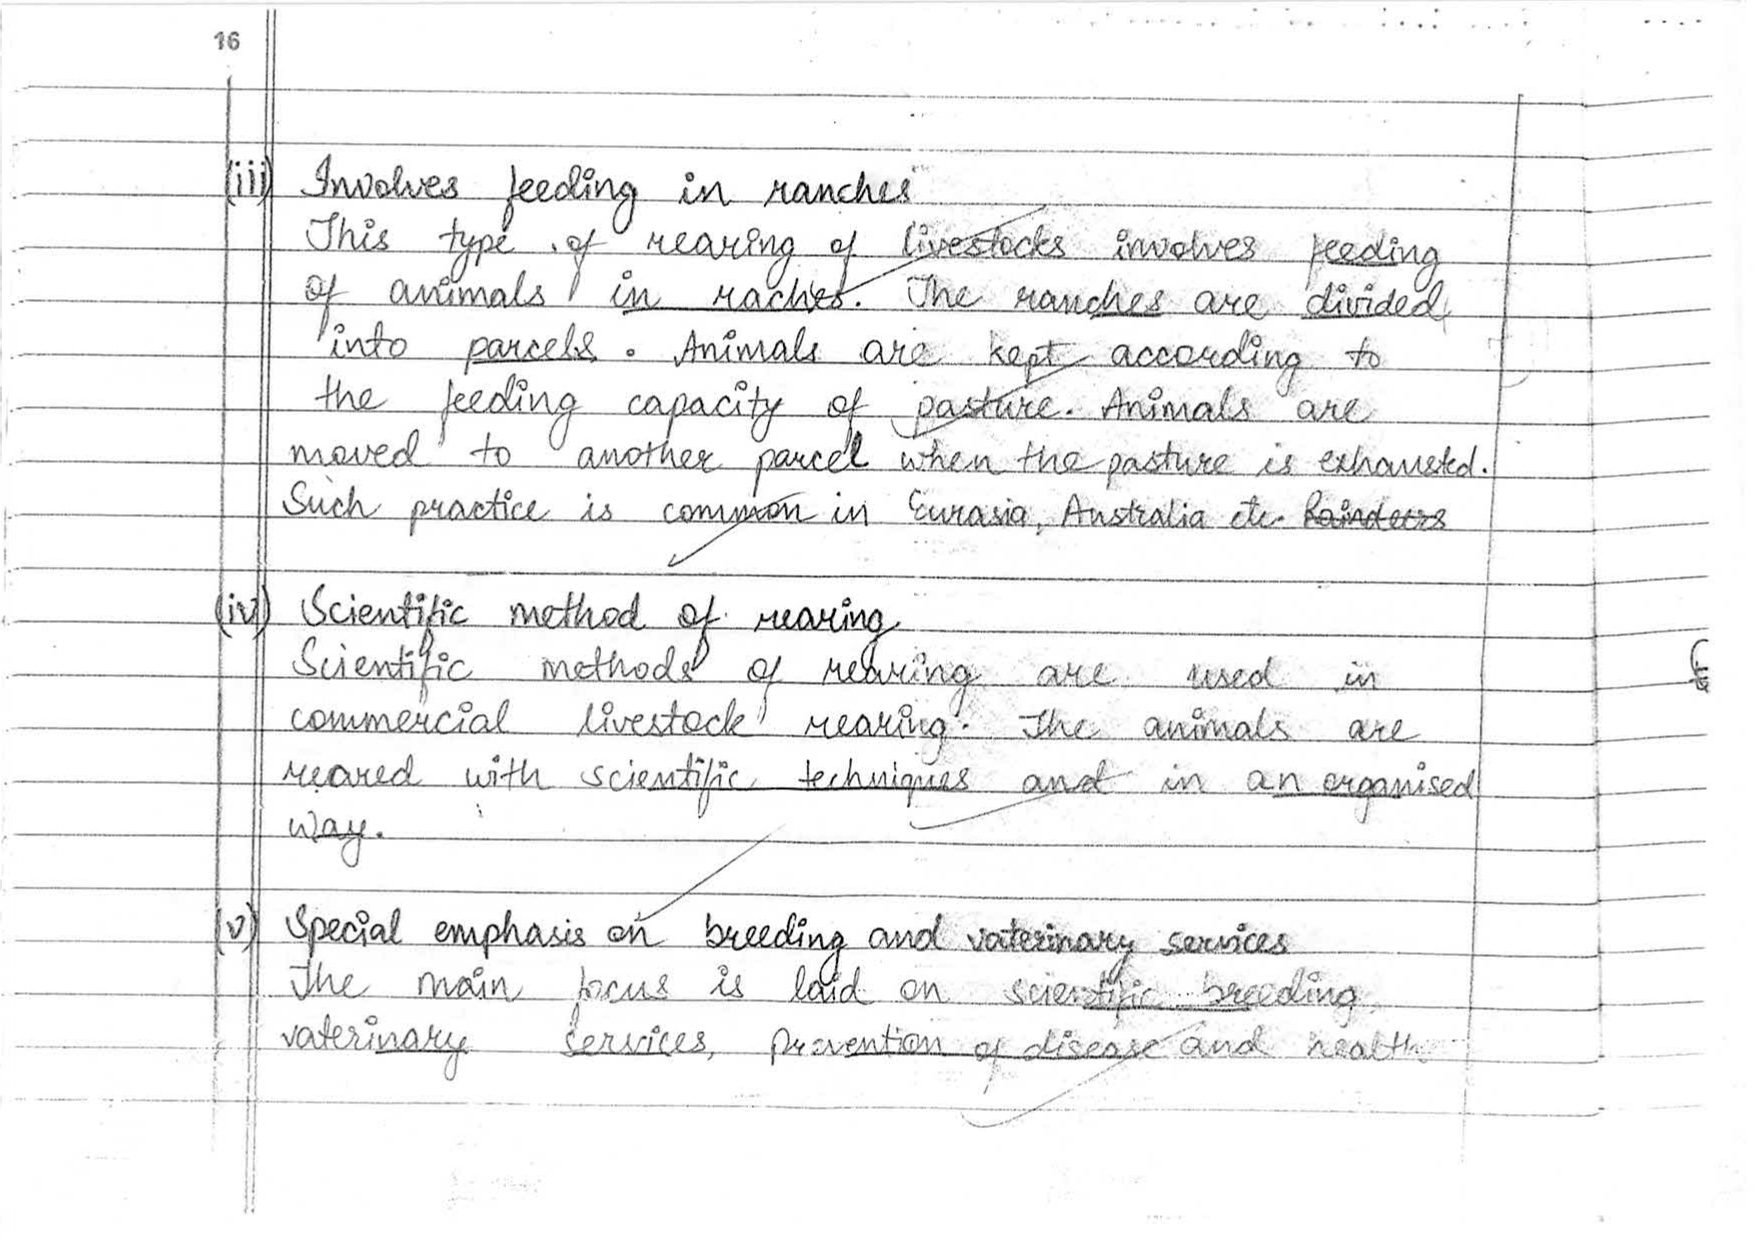 16
(iii) Involves feeding in ranches
This type of rearing of livestocks involves feeding
of animals in raches. The ranches are divided
into parcels. Animals are kept according to
the feeding capacity of pasture. Animals are
moved to another parcel when the pasture is exhausted.
Such practice is common in Eurasia, Australia etc. Raindeers
(iv) Scientific method of rearing
Scientific methods of rearing are used in
commercial livestock rearing. The animals are
reared with scientific techniques and in an organised
way.
(v) Special emphasis on breeding and vaterinary services
The main focus is laid on scientific breeding,
vaterinary services, prevention of disease and health